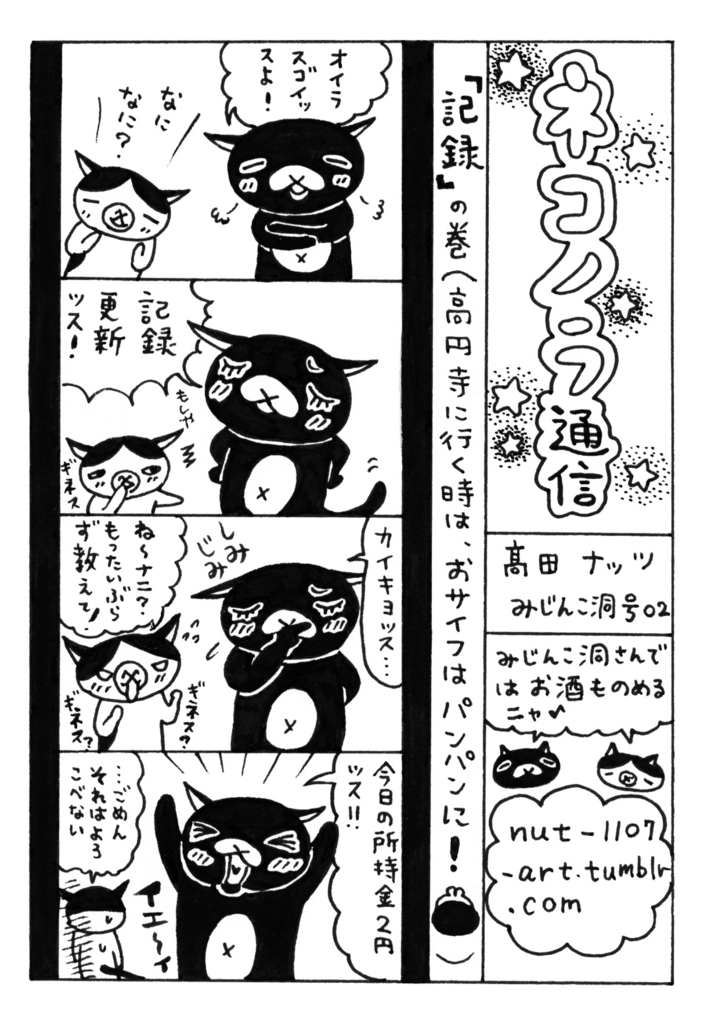 ネコノラ通信
髙田 ナッツ
みじんこ洞号02
みじんこ洞さんで
はお酒ものめる
ニャ
nut-1107
-art.tumblr
.com
『記録』の巻(高円寺に行く時は、おサイフはパンパンに!
オイラ
スゴイッ
スよ!
なに
なに?
記録
更新
ッス!
もしや
ギネス
カイキョッス…
しみ
じみ
ね〜ナニ?
もったいぶら
ず教えて!
ギネス?
ギネス?
今日の所持金2円
ッス!!
イエーイ
…ごめん
それはよろ
こべない